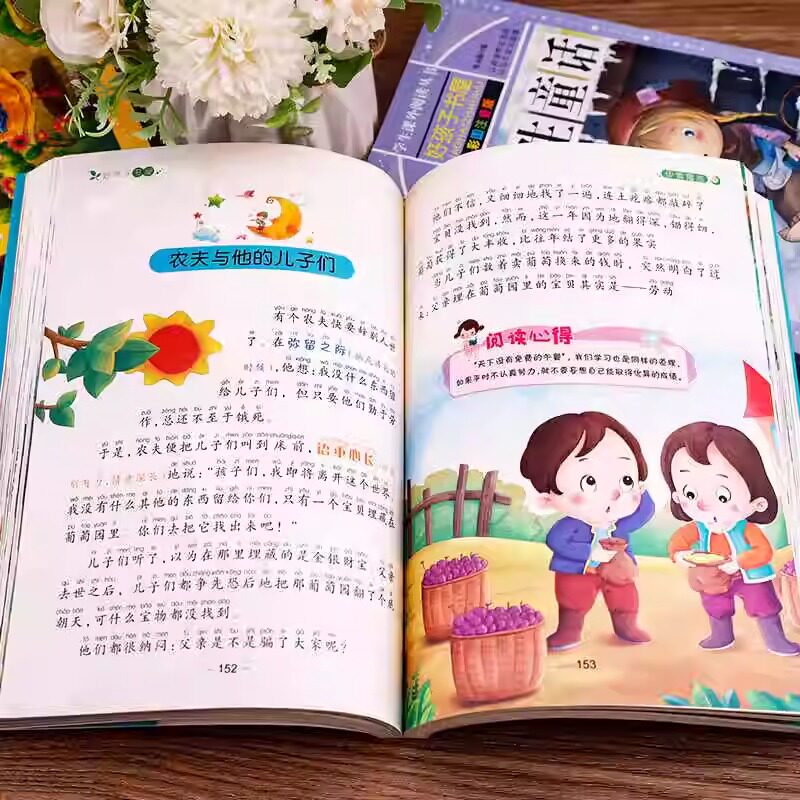 农夫与他的儿子们
有个农夫快要与别人世
了。在弥留之际
时候），他想：我没什么东西留
给儿子们，但只要他们勤于劳
作，总还不至于饿死。
于是，农夫便把儿子们叫到床前，语重心长
地说，“孩子们，我即将离开这个世界，
我没有什么其他的东西留给你们，只有一个宝贝埋藏在
葡萄园里 你们去把它找出来吧！”
儿子们听了，以为在那里埋藏的是金银财宝，父亲
去世之后，儿子们都争先恐后地把那葡萄园翻了个底
朝天，可什么宝物都没找到
他们都很纳闷：父亲是不是骗了大家呢？
152
他们不信，又细细地找了一遍，连土疙瘩都敲碎了
宝贝没找到，然而，这一年因为地翻得深，锄得细，
葡萄获得了大丰收，比往年结了更多的果实
当儿子们数着卖葡萄换来的钱时，突然明白了过
来：父亲埋在葡萄园里的宝贝其实是——劳动
阅读心得
“天下没有免费的午餐”，我们学习也是同样的道理，
如果平时不认真努力，就不要妄想自己能取得优异的成绩。
153
学生课外阅读丛书
好孩子书屋
彩图注音版
生童话